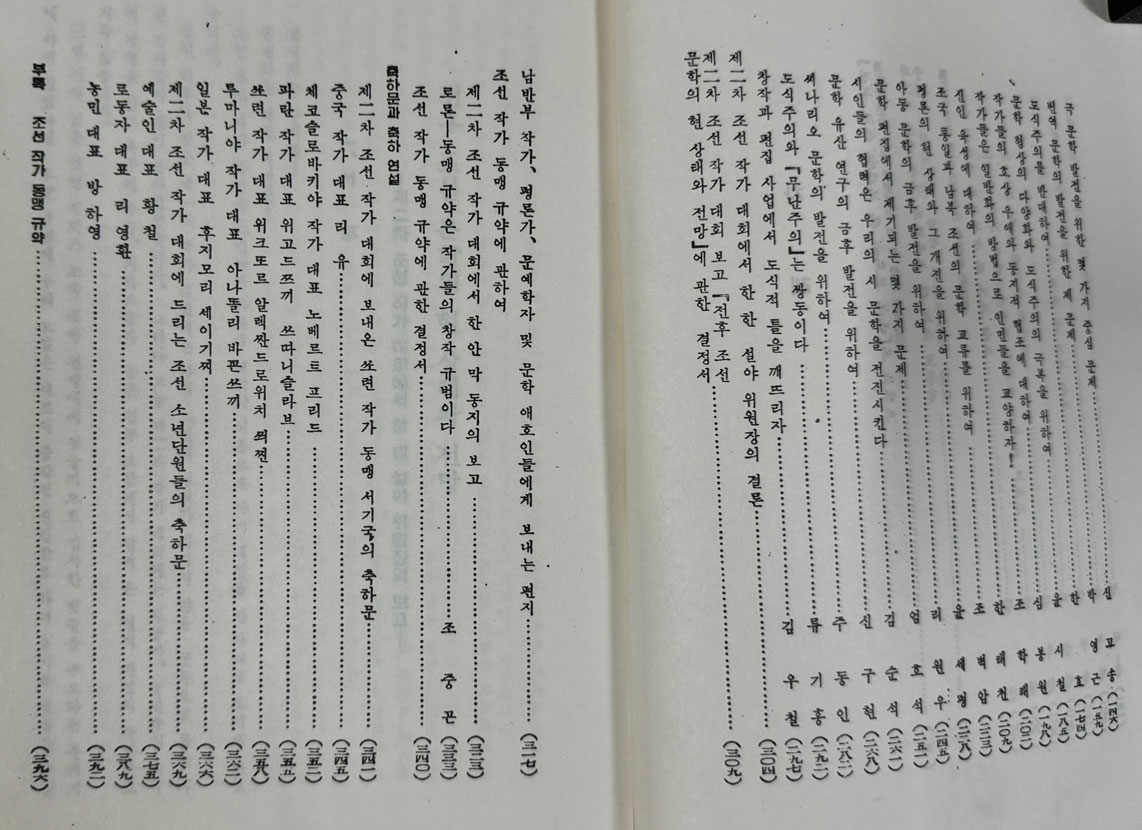 극 문학 발전을 위한 몇 가지 중심 문제……신 고 송 (一四六)
번역 문학의 발전을 위한 제 문제……박 영 근 (一五九)
도식주의를 반대하여……한 효 (一七四)
문학 형상의 다양화와 도식주의의 극복을 위하여……윤 시 철 (一八五)
작가들의 호상 우애와 동지적 협조에 대하여……심 봉 원 (一九八)
작가들은 일반화의 방법으로 인민들을 교양하자!……조 학 래 (二〇二)
신인 육성에 대하여……한 태 천 (二〇九)
조국 통일과 남북 조선의 문학 교류를 위하여……조 벽 암
평론의 현 상태와 그 개진을 위하여……윤 세 평 (二二八)
아동 문학의 금후 발전을 위하여……리 원 우 (二四五)
문학 편집에서 제기되는 몇 가지 문제……엄 호 석 (二五一)
시인들의 협력은 우리의 시 문학을 전진시킨다……김 순 석 (二六一)
문학 유산 연구의 금후 발전을 위하여……신 구 현 (二六八)
씨나리오 문학의 발전을 위하여……주 동 인 (二八二)
도식주의와 『무난주의』는 짱동이다……류 기 홍 (二九二)
창작과 편집 사업에서 도식적 틀을 깨뜨리자……김 우 철 (二九七)
제二차 조선 작가 대회에서 한 한 설야 위원장의 결론……(三〇四)
제二차 조선 작가 대회 보고 『전후 조선
문학의 현 상태와 전망』에 관한 결정서……(三〇九)
남반부 작가, 평론가, 문예학자 및 문학 애호인들에게 보내는 편지……(三一七)
조선 작가 동맹 규약에 관하여
제二차 조선 작가 대회에서 한 안 막 동지의 보고……(三二三)
토론—동맹 규약은 작가들의 창작 규범이다……조 중 곤 (三三三)
조선 작가 동맹 규약에 관한 결정서……(三四〇)
축하문과 축하 연설
제二차 조선 작가 대회에 보내온 쏘련 작가 동맹 서기국의 축하문……(三四一)
중국 작가 대표 리 유……(三四五)
체코슬로바키야 작가 대표 노베르트 프리드……(三五二)
파란 작가 대표 위고드쯔끼 쓰따니슬라브……(三五五)
쏘련 작가 대표 위크또르 알렉싼드로위치 쾨쩬……(三五八)
루마니야 작가 대표 아나똘리 바꼰쓰끼……(三六二)
일본 작가 대표 후지모리 세이기찌……(三六六)
제二차 조선 작가 대회에 드리는 조선 소년단원들의 축하문……(三六九)
예술인 대표 황 철……(三七五)
로동자 대표 리 영환……(三八九)
농민 대표 방 하영……(三九二)
부록 조선 작가 동맹 규약……(三九六)